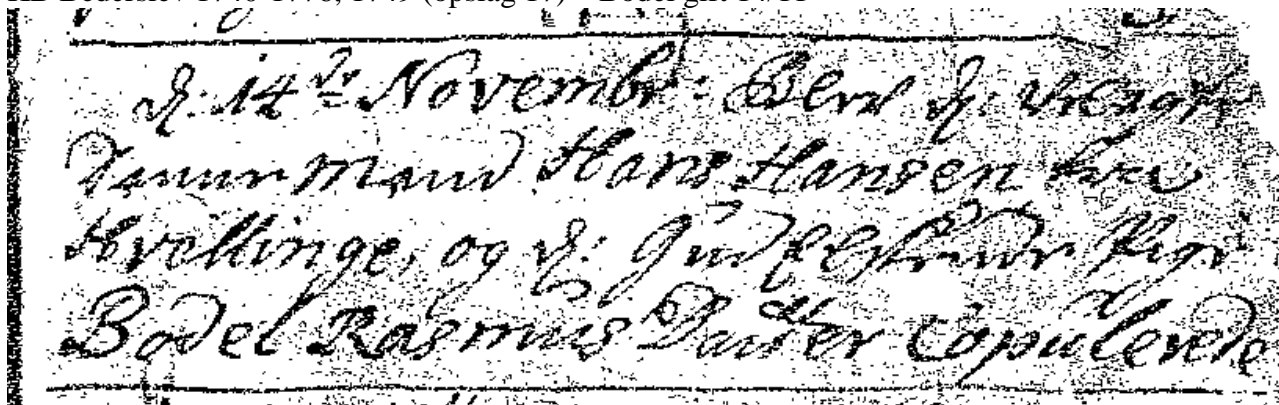 d: 14de Novembr: Blev d: unge
Danne Mand Hans Hansen fra
Hvellinge, og d: Gudelskende Pige
Bodel Rasmus Daatter Copulerede